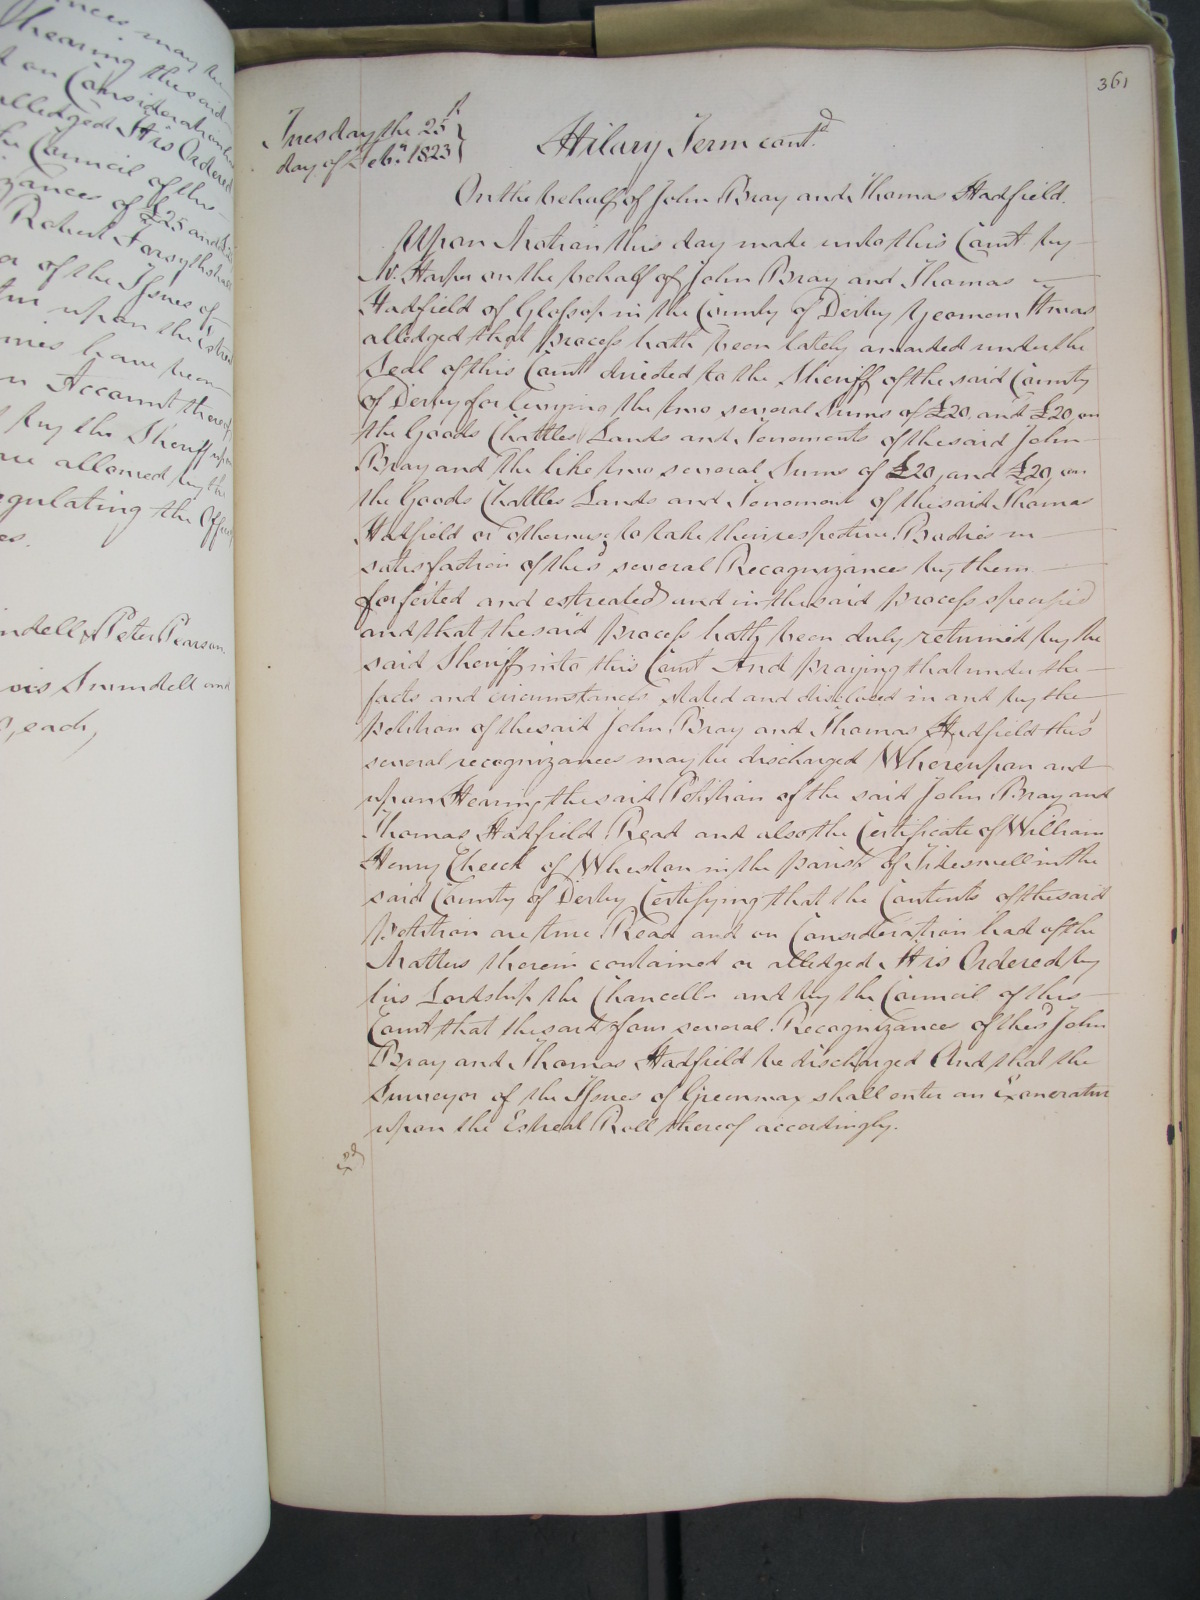 nces may the
hearing the said
on Consideration
alledged It is Ordered
the Council of this
zances of £25 and
Robert Forsyth
or of the Issues of
upon the
mes have been
Account thereof
by the Sheriff upon
are allowed by the
gulating the Office
es.
ndell & Peter Pearson
ois Trundell and
each,
361
Tuesday the 25th
day of Feby 1823
Hilary Term contd
On the behalf of John Bray and Thomas Hadfield.
Upon Motion this day made unto this Court by
Mr. Harper on the behalf of John Bray and Thomas
Hadfield of Glossop in the County of Derby Yeomen It was
alledged that Process hath been lately awarded under the
Seal of this Court directed to the Sheriff of the said County
of Derby for levying the two several Sums of £20 and £20 on
the Goods Chattles Lands and Tenements of the said John
Bray and the like two several Sums of £20, and £20, on
the Goods Chattles Lands and Tenements of the said Thomas
Hadfield or otherwise to take their respective Bodies in
satisfaction of the sd several Recognizances by them
forfeited and estreated and in the said Process specified
and that the said Process hath been duly returned by the
said Sheriff into this Court And praying that under the
facts and circumstances stated and disclosed in and by the
petition of the said John Bray and Thomas Hadfield the sd
several recognizances may be discharged Whereupon and
upon Hearing the said Petition of the said John Bray and
Thomas Hadfield Read and also the Certificate of William
Henry Cheek of Wheston in the parish of Tideswell in the
said County of Derby Certifying that the Contents of the said
Petition are true Read and on Consideration had of the
Matters therein contained or alledged It is Ordered by
his Lordship the Chancellor and by the Council of this
Court that the said four several Recognizances of the sd John
Bray and Thomas Hadfield be discharged And that the
Surveyor of the Issues of Greenwax shall enter an Exoneratur
upon the Estreat Roll thereof accordingly.